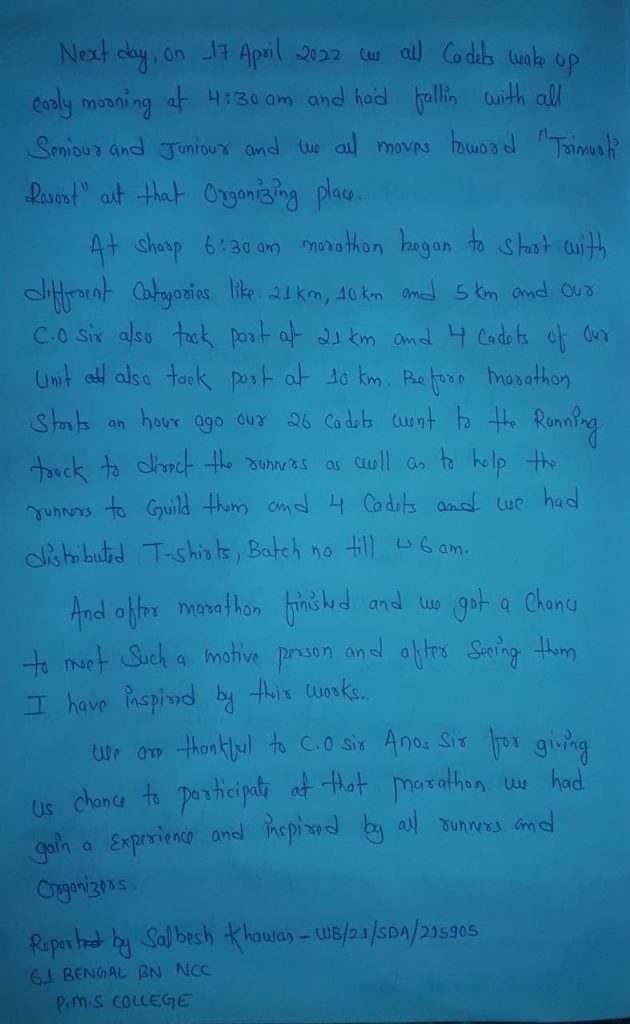 Next day, on 17 April 2022 we all Cadets wake up
early morning at 4:30 am and had fallin with all
Seniour and Juniour and we all moves toward "Trimurti
Resort" at that Organizing place.
At sharp 6:30 am marathon began to start with
different Catagories like. 21km, 10km and 5km and our
C.O Sir also took part at 21 km and 4 Cadets of our
Unit also took part at 10 km. Before Marathon
Starts an hour ago our 26 Cadets went to the Running
track to direct the runners as well as to help the
runners to Guild them and 4 Cadets and we had
distributed T-shirts, Batch no till 6 am.
And after marathon finished and we got a Chance
to meet Such a motive person and after Seeing them
I have inspired by their works.
We are thankful to C.O Sir Sir for giving
us chance to participate at that marathon. we had
gain a Experience and inspired by all runners and
Organizers.
Reported by Salbesh Khawas - WB/21/SDA/215905
61 BENGAL BN NCC
P.M.S COLLEGE